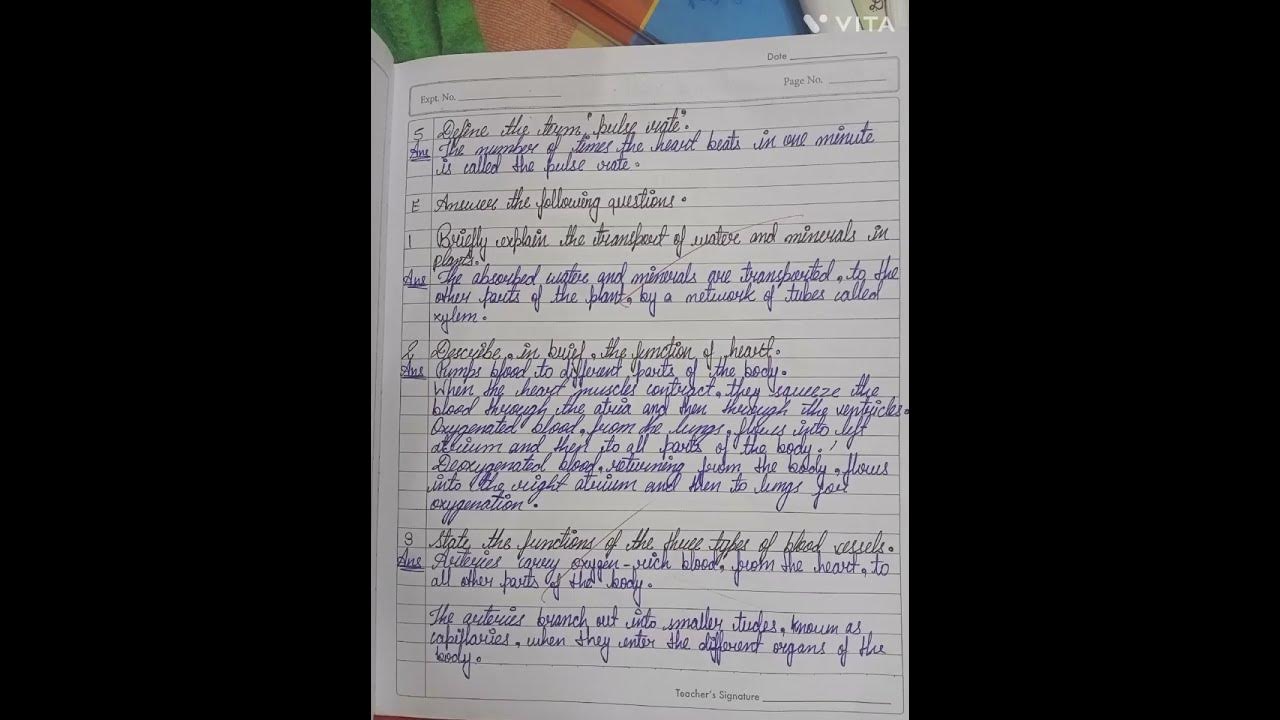 VITA
Date
Page No.
Expt. No.
5 Define the term "pulse rate".
Ans The number of times the heart beats in one minute
is called the pulse rate.
E Answers the following questions.
1 Briefly explain the transport of water and minerals in
plants.
Ans The absorbed water and minerals are transported, to the
other parts of the plant, by a network of tubes called
xylem.
2 Describe, in brief, the function of heart.
Ans Pumps blood to different parts of the body.
When the heart muscles contract, they squeeze the
blood through the atria and then through the ventricles.
Oxygenated blood, from the lungs, flows into left
atrium and then to all parts of the body.
Deoxygenated blood, returning from the body, flows
into the right atrium and then to lungs for
oxygenation.
3 State the functions of the three types of blood vessels.
Ans Arteries carry oxygen-rich blood, from the heart, to
all other parts of the body.
The arteries branch out into smaller tudes, known as
capillaries, when they enter the different organs of the
body.
Teacher's Signature